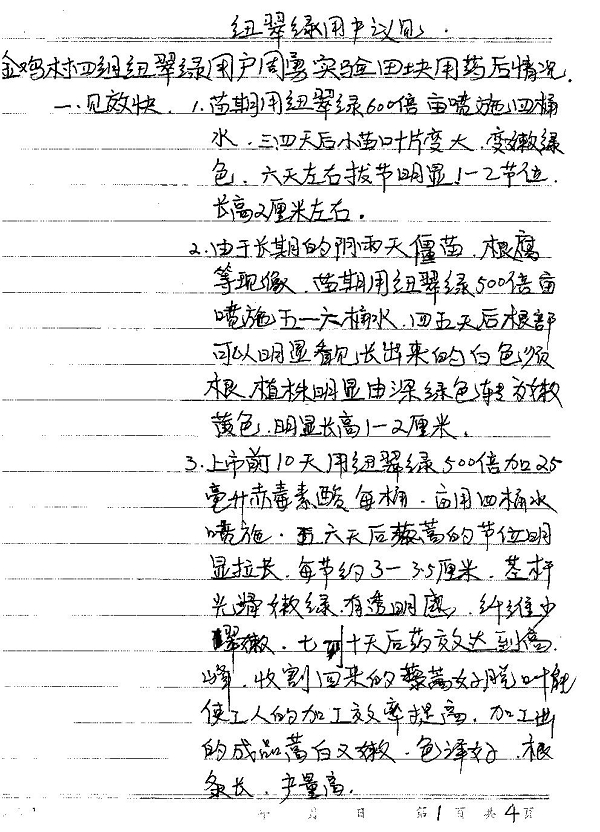 纽翠绿用户议见.
金鸡村四组纽翠绿用户周勇实验田块用药后情况.
一.见效快. 1.苗期用纽翠绿600倍亩喷施四桶
水.三四天后小苗叶片变大.变嫩绿
色.六天左右拔节明显1-2节位.
长高2厘米左右.
2.由于长期的阴雨天僵苗.根腐
等现像.苗期用纽翠绿500倍亩
喷施五一六桶水.四五天后根部
可以明显看见长出来的白色须
根.植株明显由深绿色转为嫩
黄色.明显长高1-2厘米.
3.上市前10天用纽翠绿500倍加25
毫升赤毒素酸每桶.亩用四桶水
喷施.五六天后藜蒿的节位明
显拉长.每节约3-3.5厘米.茎杆
光滑嫩绿有透明感.纤维少
嫩.七到十天后药效达到高
峰.收割回来的藜蒿好脱叶能
使工人的加工效率提高.加工出
的成品蒿白又嫩.色泽好.根
条长.产量高.
年 月 日 第1页 共4页